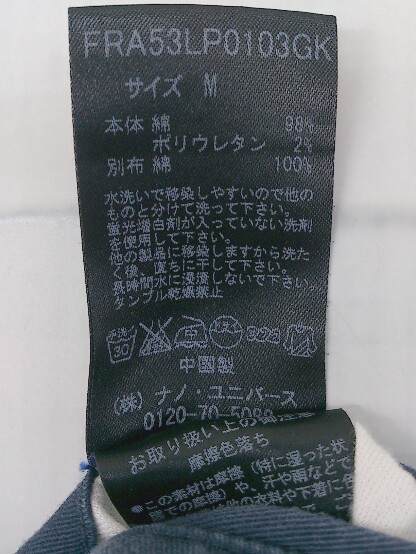 FRA53LP0103GK
サイズ M
本体 綿 98%
ポリウレタン 2%
別布 綿 100%
水洗いで移染しやすいので他の
ものと分けて洗って下さい。
蛍光増白剤が入っていない洗剤
を使用して下さい。
他の製品に移染しますから洗た
く後、直ちに干して下さい。
長時間水に浸漬しないで下さい。
タンブル乾燥禁止
手洗イ 30
中国製
(株) ナノ・ユニバース
0120-70-5099
お取り扱い上の御注意
摩擦色落ち
●この素材は摩擦(特に湿った状
態での摩擦)や、汗や雨などで
他の衣料や下着に色